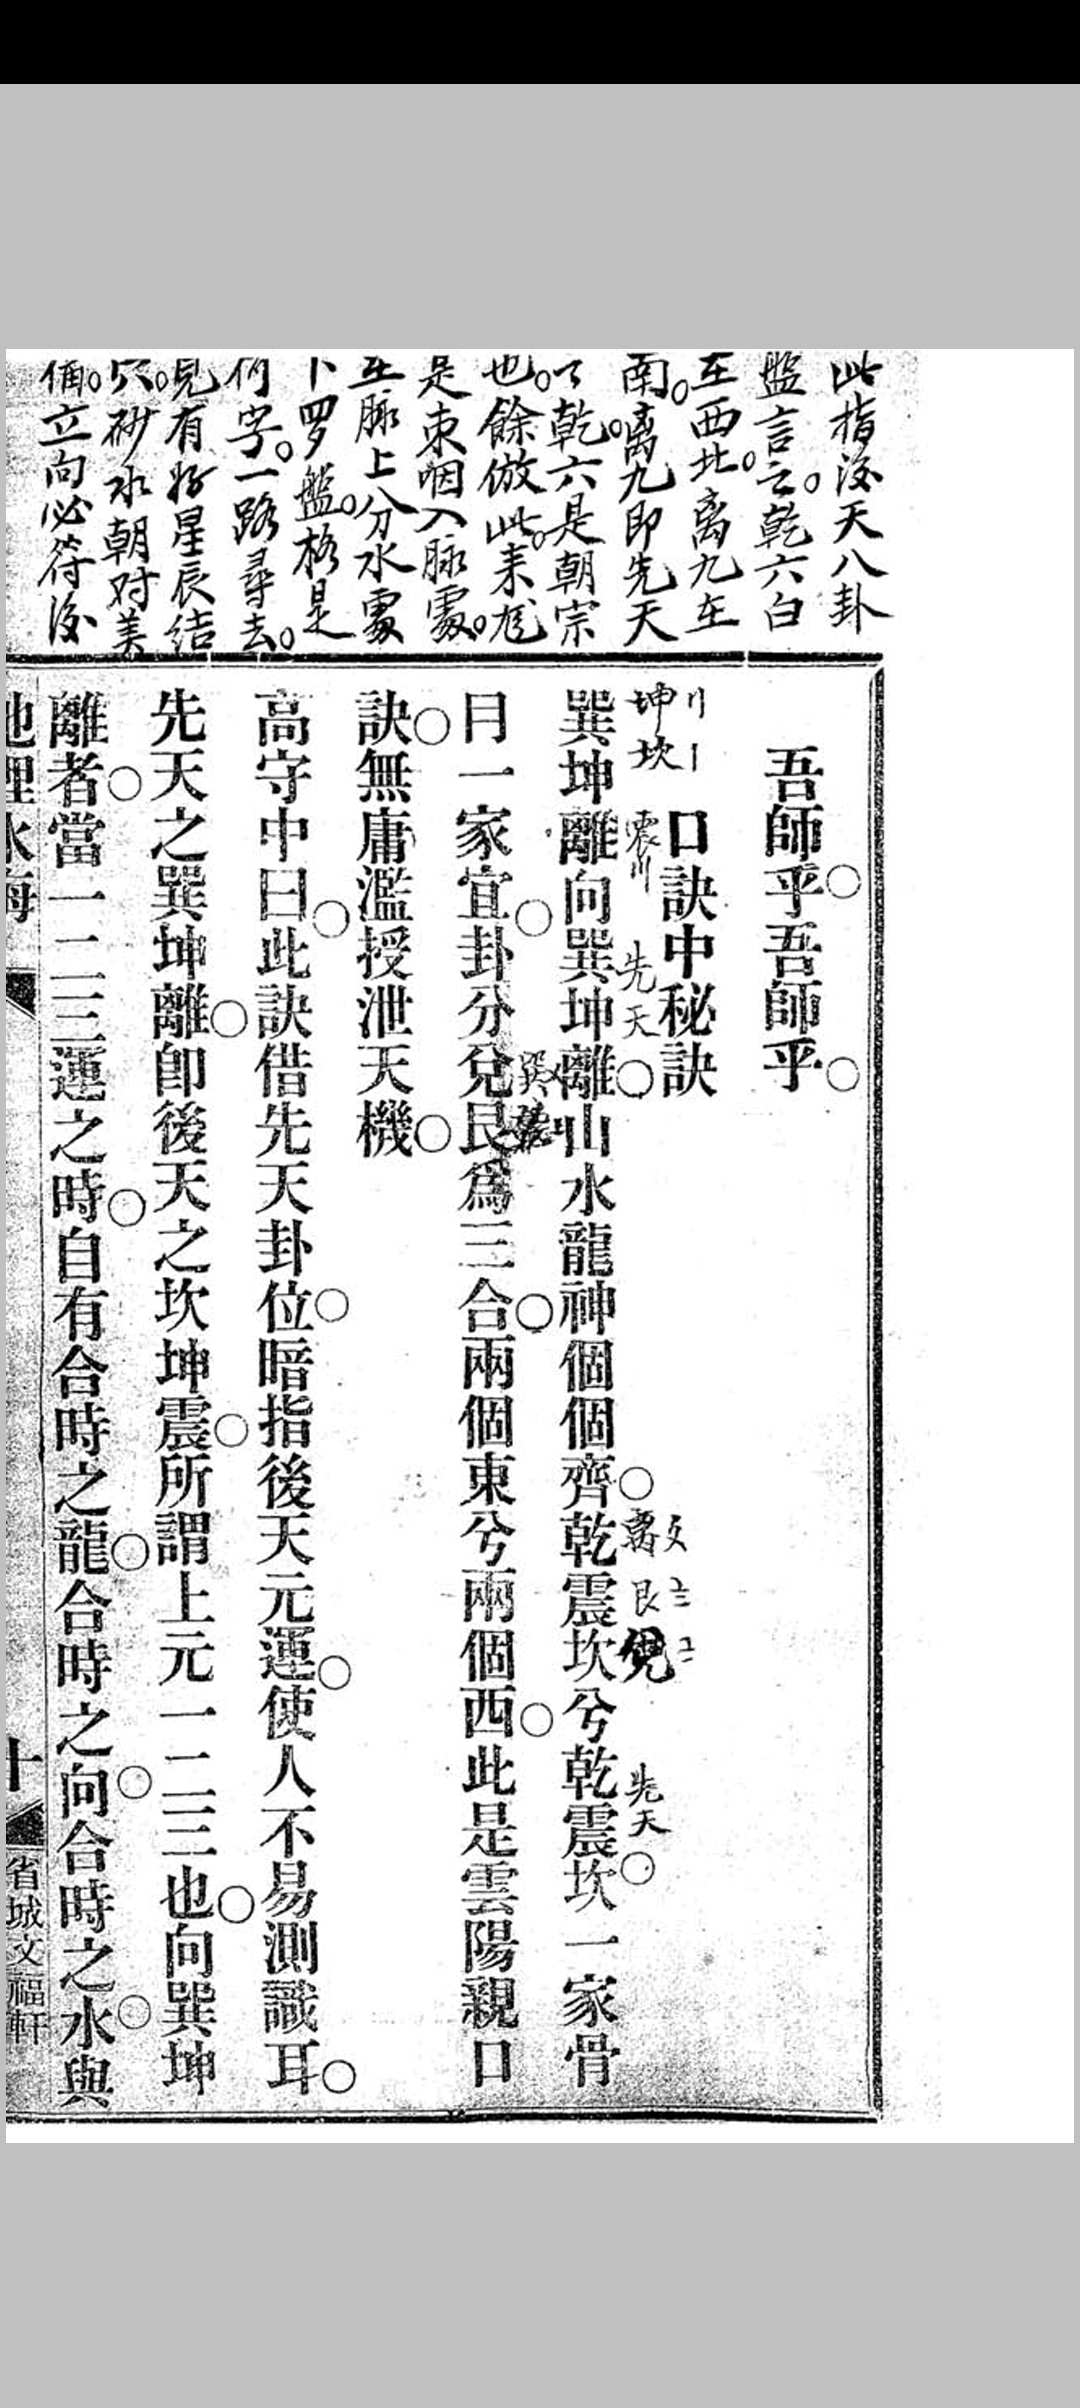 此指後天八卦
盤言之。乾六白
在西北。离九在
南。离九即先天
之乾。六是朝宗
也。餘倣此。来尨
是束咽入脉處。
在脉上分水處
卜罗盤。格是
何字。一路尋去。
見有好星辰結
穴。砂水朝对美
備。立向必符後
吾師乎○吾師乎○
口訣中秘訣
川 坤
丨 坎
震川
先天
巽坤離向巽坤離○山水龍神個個齊○乾震坎兮乾震坎○一家骨
艮
兌
先天
月一家宜○卦分兌艮爲三合○兩個東兮兩個西○此是雲陽親口
巽
訣○無庸濫授泄天機○
高守中曰○此訣借先天卦位○暗指後天元運○使人不易測識耳○
先天之巽坤離○卽後天之坎坤震○所謂上元一二三也○向巽坤
離者○當一二三運之時○自有合時之龍○合時之向○合時之水○與
地理水海
十
省城文福軒